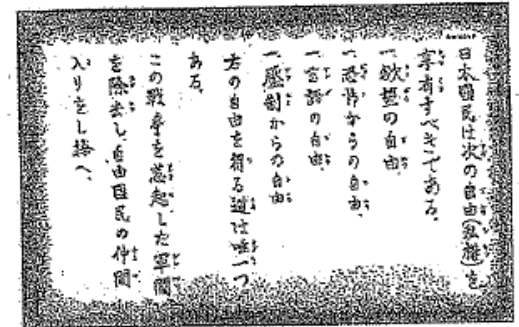 日本國民は次の自由(私權)を
享有すべきである。
一、欲望の自由
一、恐怖からの自由
一、言論の自由
一、壓制からの自由
右の自由を得る道は唯一つ
ある。
この戰爭を惹起した軍閥
を除去し、自由國民の仲間
入りをし給へ。